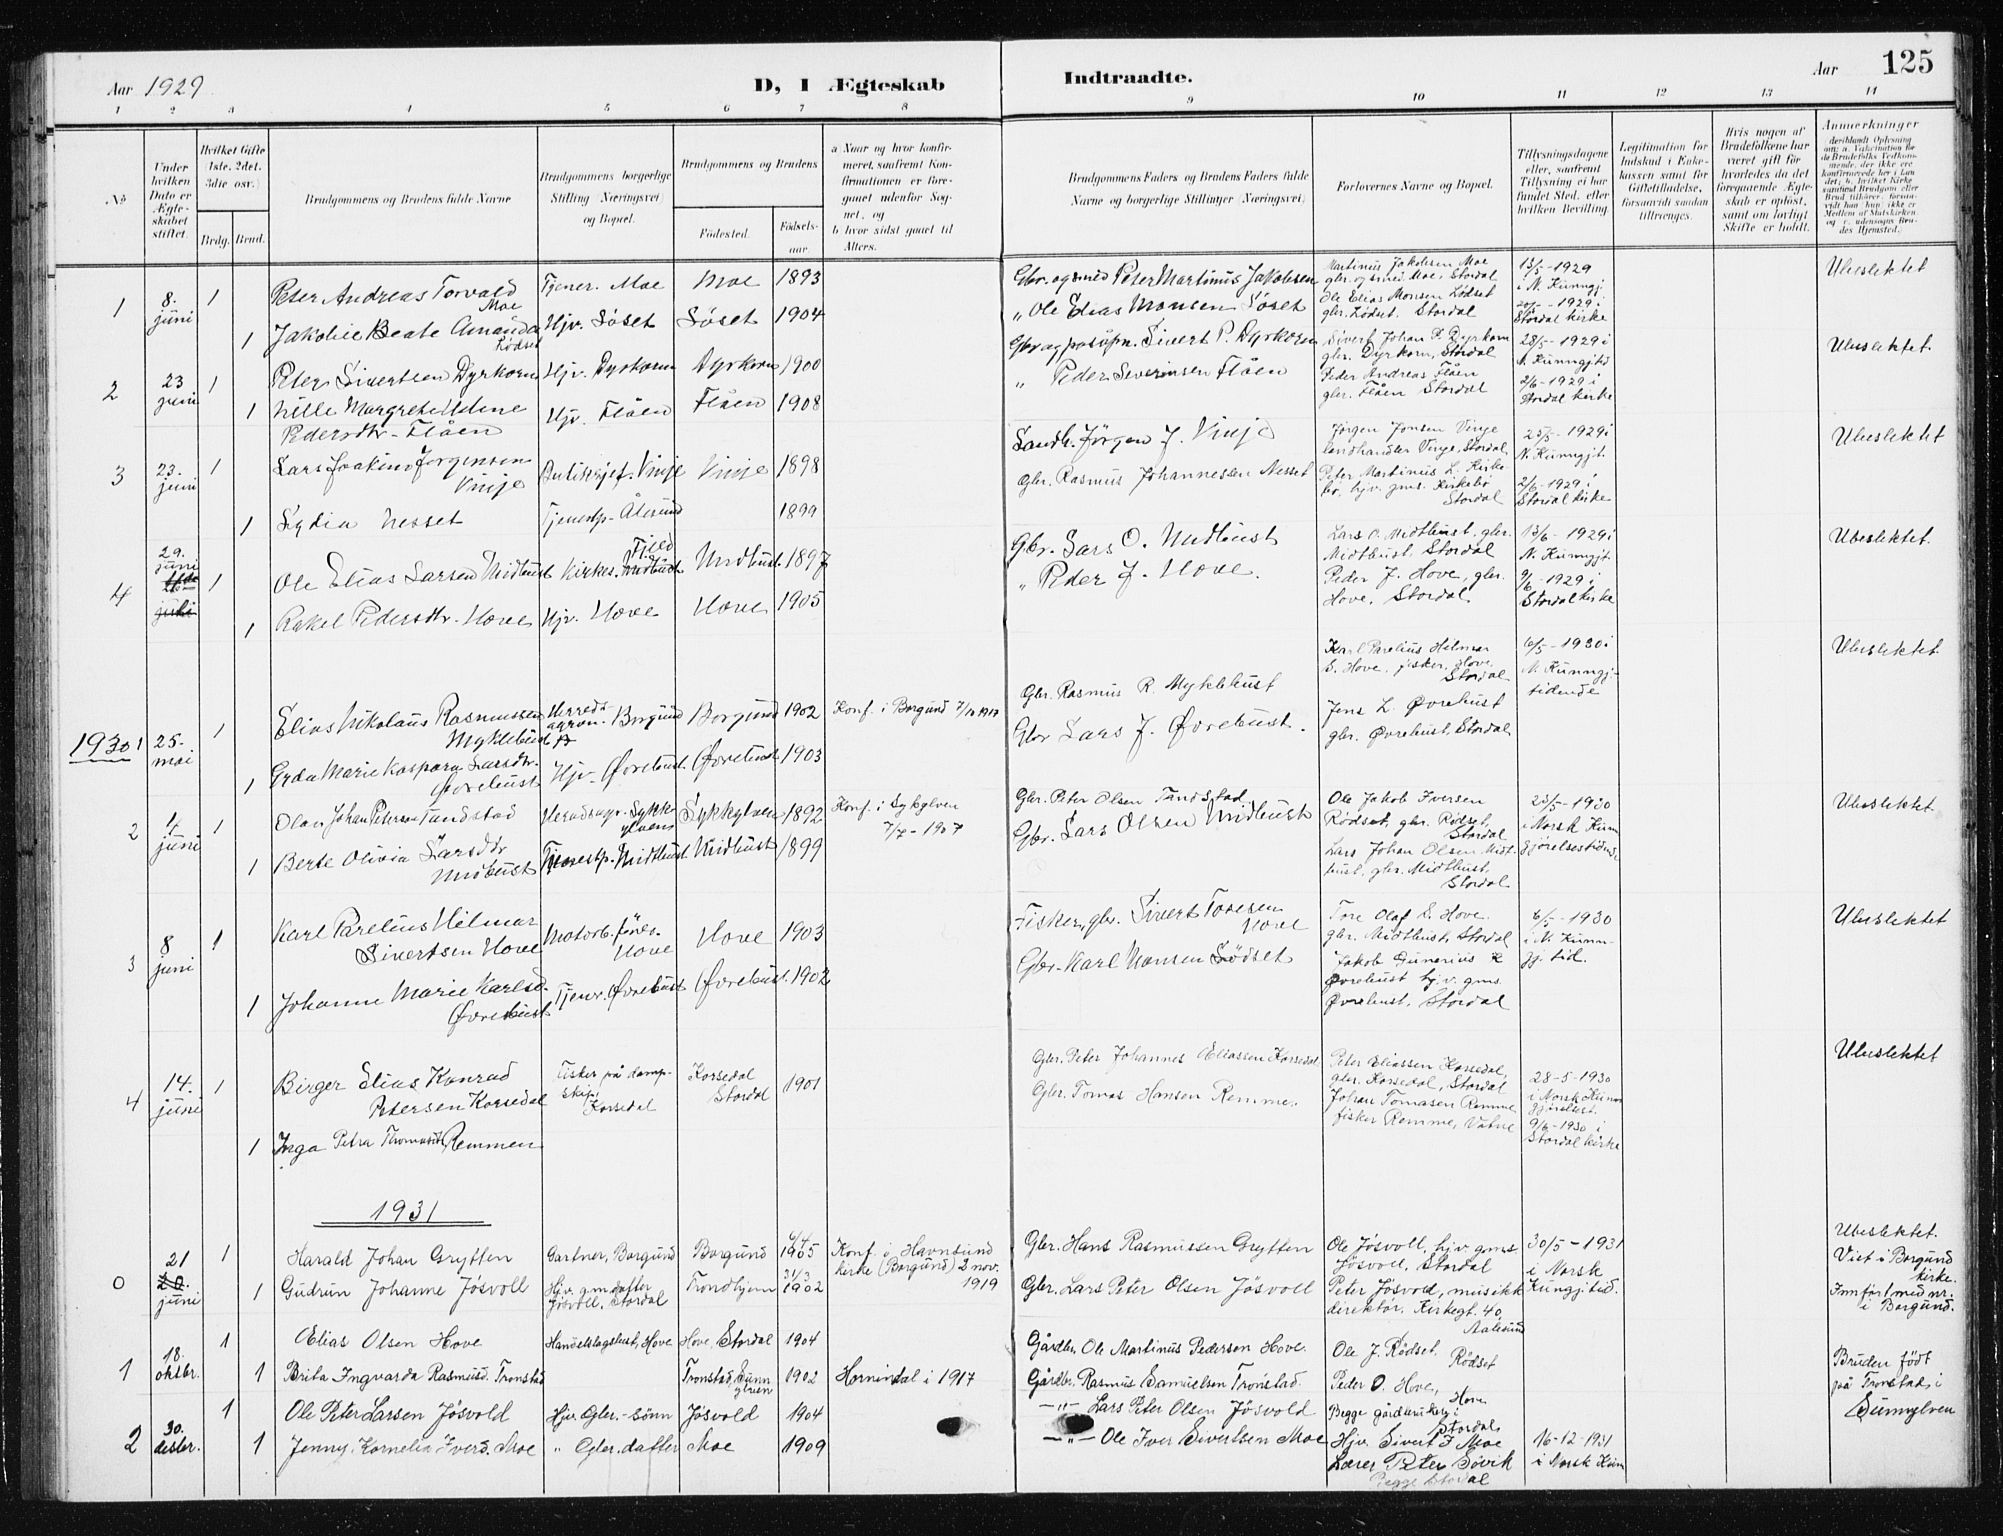 Aar 1929
D, I Ægteskab Indtraadte.
Aar 125
1 2 3 4 5 6 7 8 9 10 11 12 13 14
No
Under hvilken Dato er Ægteskabet stiftet.
Hvilket Gifte (1ste, 2det, 3die osv.)
Brdg. Brud.
Brudgommens og Brudens fulde Navne
Brudgommens borgerlige Stilling (Næringsvei) og Bopæl.
Brudgommens og Brudens
Fødested.
Fødselsaar.
a Naar og hvor konfirmeret, saafremt Konfirmationen er foregaaet udenfor Sognet, og
b hvor sidst gaaet til Alters.
Brudgommens Faders og Brudens Faders fulde Navne og borgerlige Stillinger (Næringsvei)
Forlovernes Navne og Bopæl.
Tillysningsdagene eller, saafremt Tillysning ei har fundet Sted, efter hvilken Bevilling.
Legitimation for Indskud i Enkekassen samt for Giftetilladelse, forsaavidt saadan tiltrænges.
Hvis nogen af Brudefolkene har været gift før hvorledes da det foregaaende Ægteskab er opløst, samt om lovligt Skifte er holdt.
Anmerkninger
1 8. juni 1
Peter Andreas Torvald Moe
Tjener. Moe Moe 1893
Gbr. og smed Peter Martinus Jakobsen
Martinus Jakobsen Moe
gbr. og smed Moe, Stordal
13/5-1929
i N. Kunngj.
Ubeslektet
1 Jakobie Beate Amanda Lødset
Hjv. Løset Løset 1904
„ Ole Elias Monsen Løset
Ole Elias Monsen Lødset
gbr. Lødset. Stordal
Stordal kirke
2 23 juni 1
Peter Sivertsen Dyrkorn
Hjv. Dyrkorn Dyrkorn 1900
Gbr og posåpn. Sivert P. Dyrkorn
Sivert Johan P. Dyrkorn
gbr. Dyrkorn, Stordal
28/5-1929 i
N. Kunngjtid
Ubeslektet.
1 Lille Margrete
Pedersdtr. Flåen
Hjv. Flåen Flåen 1908
„ Peder Severinsen Flåen
Peder Andreas Flåen
gbr. Flåen Stordal
2/6-1929 i
Stordal kirke
3 23. juni 1
Lars Joakim Jørgensen Vinje
Butikksjef. Vinje Vinje 1898
Landh. Jörgen J. Vinje
Jörgen Jonsen Vinje
landhandler Vinje, Stordal,
25/5-1929 i
N. Kunngjt.
Ubeslektet
1 Lydia Nesset
Tjenestp. Ålesund 1899
Gbr. Rasmus Johannessen Nesset
Peter Martinus L. Kirkebö, hjv. gms. Kirkebö
Stordal
2/6-1929 i
Stordal kirke
4 29. juni 1
Ole Elias Larsen Midtbust
Kirkes. Midtbust 1897
Gbr. Lars O. Midtbust
Lars O. Midtbust, gbr.
Midtbust, Stordal
13/6-1929 i
N. Kunngjt.
Ubeslektet.
1 Rakel Pedersdtr. Hove
Hjv. Hove Hove 1905
„ Peder J. Hove.
Peder J. Hove, gbr.
Hove, Stordal
9/6-1929 i
Stordal kirke
1930 1 25. mai 1
Elias Nikolaus Rasmussen
Myklebust
Herredsagron. Borgund Borgund 1902
Konf. i Borgund
Gbr. Rasmus R. Myklebust
Karl Parelius Hilmar
S. Hove, fisker, Hove,
Stordal
6/5-1930 i
N. Kunngj.
tidende
Ubeslektet.
1 Gyda Marie Kaspara Larsdtr.
Øvrebust
Hjv. Øvrebust. Øvrebust 1903
Gbr Lars J. Øvrebust.
Jens L. Øvrebust
gbr. Øvrebust, Stordal
2 4. juni 1
Olav Johan Petersen Tandstad
Herredsagr. Sykkylven Sykkylven 1892
Konf. i Sykylven
7/7-1907
Gbr. Peter Olsen Tandstad
Ole Jakob Iversen
Rødset, gbr. Rødset,
Stordal
23/5-1930
i Norsk Kunngjørelsestidende
Ubeslektet
1 Berte Olivia Larsdtr
Midbust
Tjenestp. Midtbust Midbust 1899
Gbr. Lars Olsen Midbust
Lars Johan Olsen Midtbust, gbr. Midtbust,
Stordal
3 8 juni 1
Karl Parelius Hilmar
Sivertsen Hove
Motorb. förer. Hove Hove 1903
Fisker, gbr. Sivert Toresen
Hove
Tore Olaf S. Hove
gbr. Midtbust, Stordal
6/5-1930
i N. Kunngj. tid.
Ubeslektet
1 Johanne Marie Karlsd.
Øvrebust
Tjenr. Øvrebust Øvrebust 1902
Gbr. Karl Monsen Lødset
Jakob Gunerius K
Øvrebust hjv. gms.
Øvrebust, Stordal
4 14. juni 1
Birger Elias Konrad
Petersen Korsedal
Fisker på dampskip, Korsedal
Korsedal Stordal 1901
Gbr. Peter Johannes Eliassen Korsedal.
Peter Eliassen Korsedal,
gbr. Korsedal, Stordal
28-5-1930
i Norsk Kunngjørelsest.
Ubeslektet
1 Inga Petra Thomasdt. Remmen
Gbr. Tomas Hansen Remme.
Johan Tomasen Remme
fisker Remme, Vatne
9/6-1930 i
Stordal kirke
1931
0 21 juni 1
Harald Johan Grytten
Gartner, Borgund Borgund 6/4 1905
Konf. i Havnsund
kirke (Borgund) 2 nov.
1919
Gbr. Hans Rasmussen Grytten
Ole Jøsvoll, hjv. gms.
Jøsvoll, Stordal
30/5-1931
i Norsk
Kungj. tid.
Ubeslektet.
Viet i Borgund
kirke.
Innført med nr.
i Borgund.
1 Gudrun Johanne Jøsvoll
Hjv. g.m. datter
Jøsvoll, Stordal
Trondhjem 31/3 1902
Gbr. Lars Peter Olsen Jøsvoll
Peter Jøsvold, musikkdirektør, Kirkegt. 40,
Aalesund
1 18. oktbr. 1
Elias Olsen Hove
Handelslagsbest. Hove Hove, Stordal 1904
Gårdbr. Ole Martinus Pedersen Hove.
Ole J. Rødset.
Rødset
1 Brita Ingvarda Rasmusd. Tronstad
Tronstad, Sunnylven 1902 Hornindal i 1917
Gårdbr. Rasmus Samuelsen Tronstad.
Peder O. Hove,
Hove
Begge gårdbrukere i
Stordal
Bruden født
på Tronstad, i
Sunnylven
2 30. desbr. 1
Ole Peter Larsen Jøsvold
Hjv. Gbr.-sønn Jøsvold 1904
—„— Lars Peter Olsen Jøsvold
1 Jenny Kornelia Iversd. Moe
„ Gbr. datter Moe 1909
—„— Ole Iver Sivertsen Moe
Hjv. Sivert I Moe
Lærer Peter Søvik
Begge Stordal
16-12-1931
i Norsk Kunn